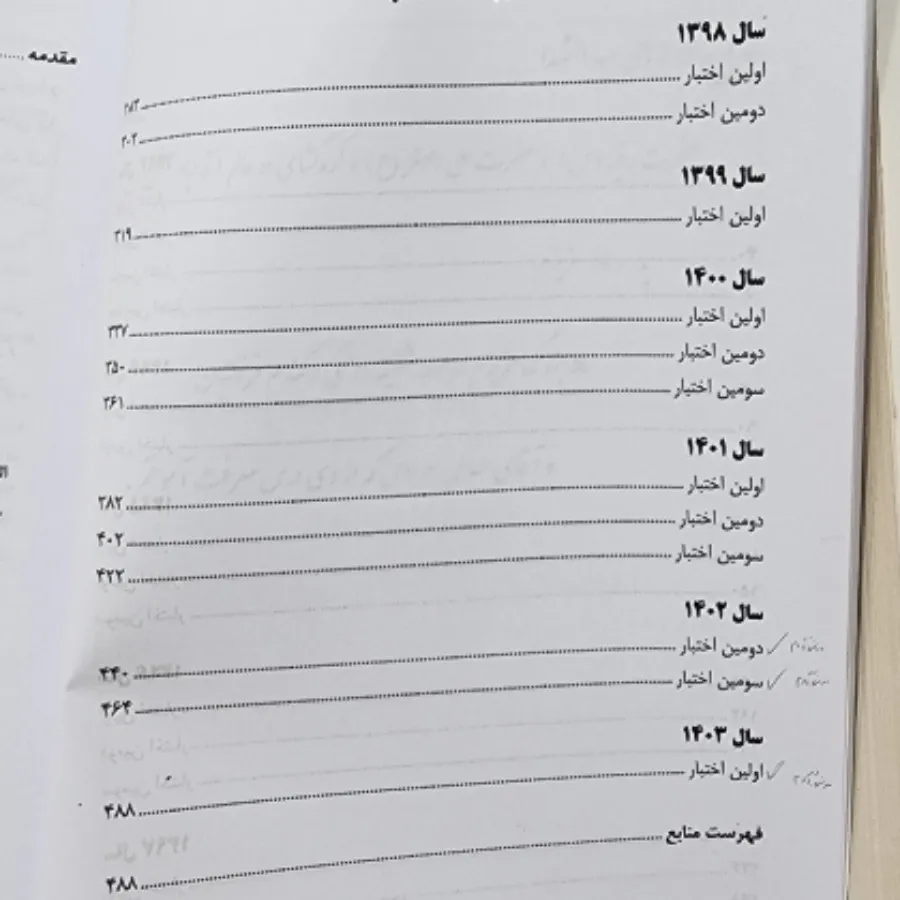 سال ۱۳۹۸
اولین اختبار ........ ۲۸۳
دومین اختبار ........ ۳۰۲
سال ۱۳۹۹
اولین اختبار ........ ۳۱۹
سال ۱۴۰۰
اولین اختبار ........ ۳۳۷
دومین اختبار ........ ۳۵۰
سومین اختبار ........ ۳۶۱
سال ۱۴۰۱
اولین اختبار ........ ۳۸۲
دومین اختبار ........ ۴۰۲
سومین اختبار ........ ۴۲۲
سال ۱۴۰۲
دومین اختبار ........ ۴۴۰
سومین اختبار ........ ۴۶۴
سال ۱۴۰۳
اولین اختبار ........ ۴۸۸
فهرست منابع ........ ۴۸۸
مقدمه ........